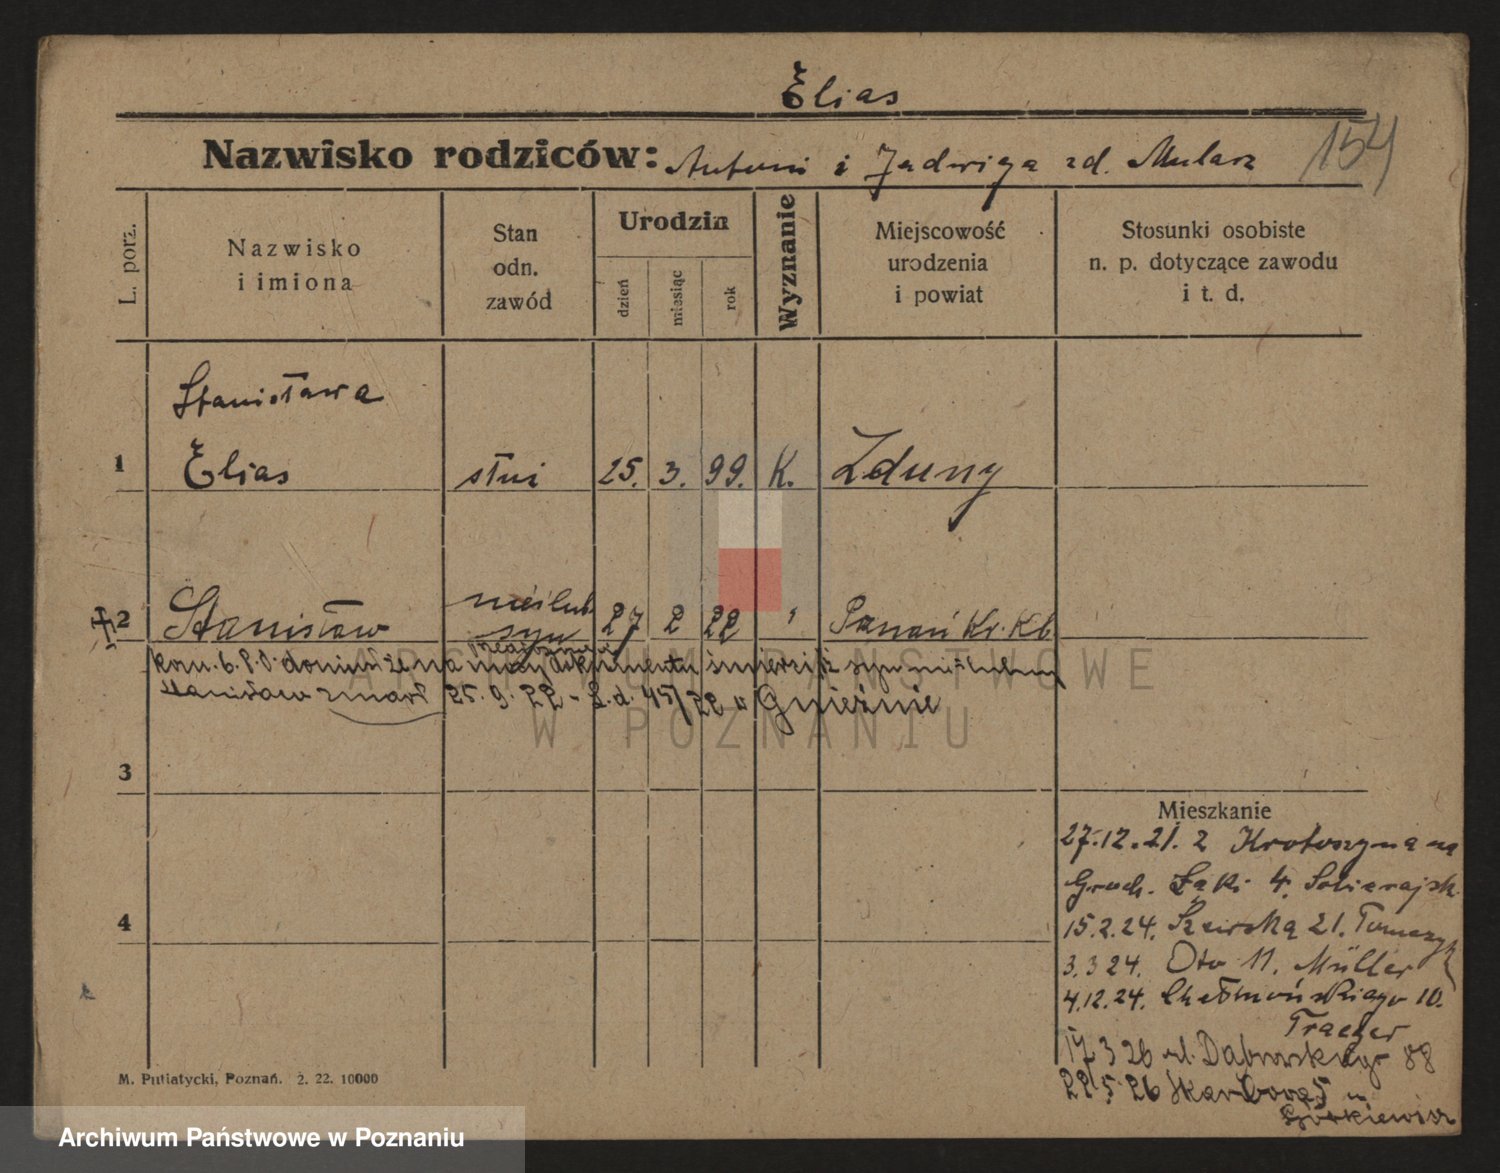 Elias
Nazwisko rodziców: Antoni i Jadwiga zd. Mularz
154
L. porz.
Nazwisko
i imiona
Stan
odn.
zawód
Urodzin
dzień
miesiąc
rok
Wyznanie
Miejscowość
urodzenia
i powiat
Stosunki osobiste
n. p. dotyczące zawodu
i t. d.
Stanisława
1 Elias służ 25. 3. 99. K. Zduny
nieślub
2 Stanisław syn 27 2 22 " Poznań Kr. Kb
na mocy dokumentu śmierci iż syn nieślubny
Stanisław zmarł 25. 9. 22 - L.d. 45/22 w Gnieźnie
ARCHIWUM PAŃSTWOWE
W POZNANIU
3
4
Mieszkanie
27.12.21. z Krotoszyna na
Groch. Łąki 4.
15.2.24. Szewska 21.
3.3 24. Oto 11. Müller
4.12.24. Chełmońskiego 10.
Traeger
17 3 26 ul. Dąbrowskiego 88
22 5 26 Skarbowa 5 u
M. Putiatycki, Poznań. 2. 22. 10000
Archiwum Państwowe w Poznaniu